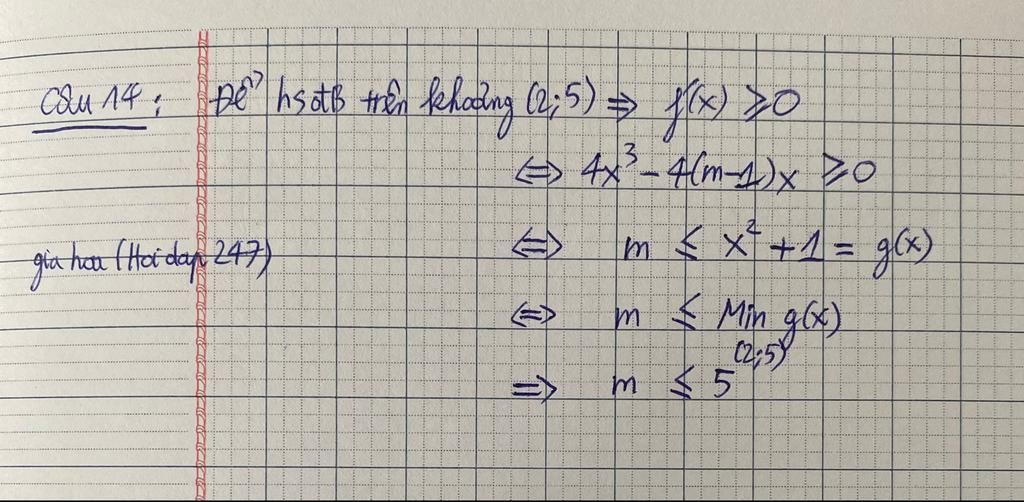 Câu 14: Để hsđtB trên khoảng (2;5) ⇒ f'(x) ⩾ 0
⇔ 4x³ - 4(m-1)x ⩾ 0
gia hou (Hoi dap 247)
⇔ m ≤ x² + 1 = g(x)
⇔ m ≤ Min g(x)
(2;5)
⇒ m ≤ 5